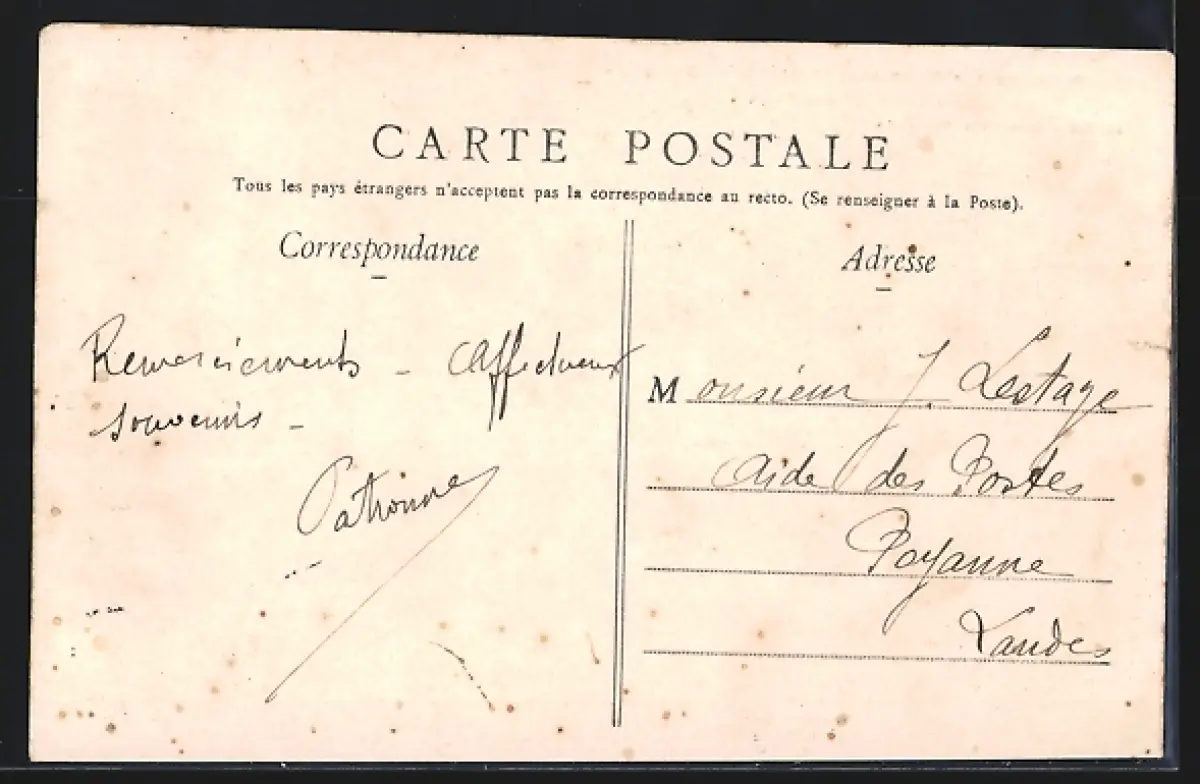 CARTE POSTALE
Tous les pays étrangers n'acceptent pas la correspondance au recto. (Se renseigner à la Poste).
Correspondance
Remerciements - Affectueux
souvenirs -
Adresse
Monsieur J. Lestage
Aide des Postes
Poyanne
Landes